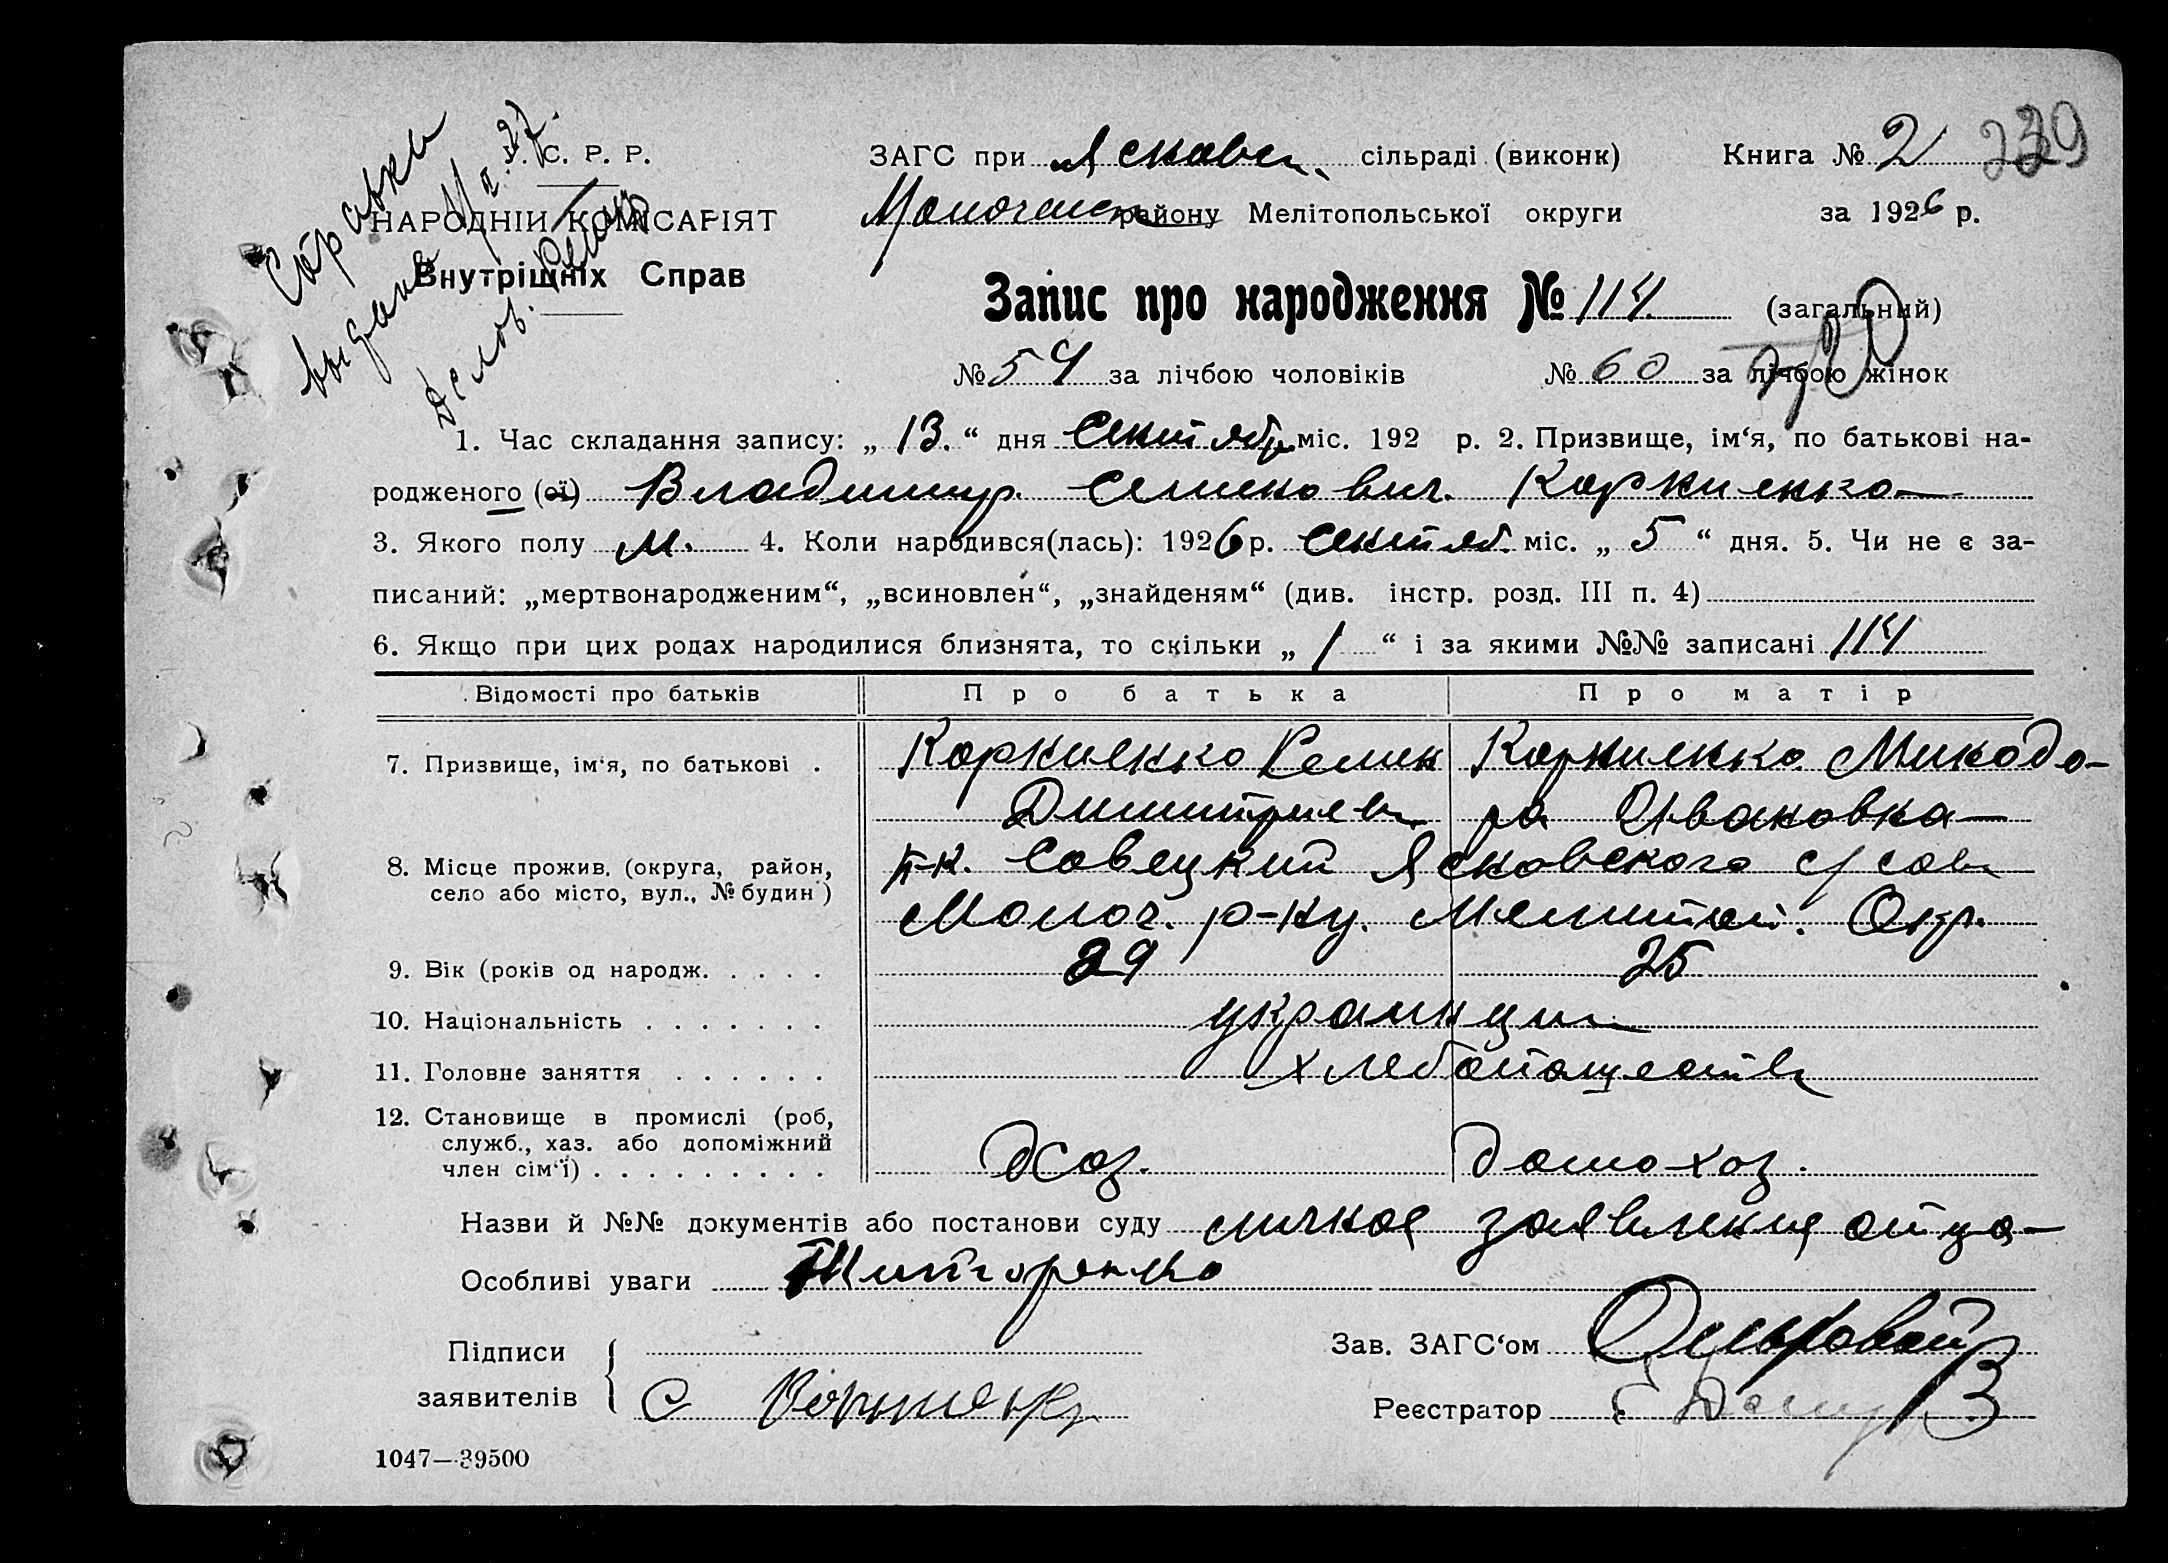 Справка
выдана 11/II. 27.
У. С. Р. Р.
НАРОДНІЙ КОМІСАРІЯТ
Внутрішніх Справ
ЗАГС при Ясков. сільраді (виконк) Книга № 2 239
Молочанск району Мелітопольської округи за 1926 р.
Запис про народження № 114. (загальний)
№ 54 за лічбою чоловіків № 60 за лічбою жінок
1. Час складання запису: „ 13. “ дня Сентябр міс. 192 р. 2. Призвище, ім‘я, по батькові на-
родженого (ої) Владимир. Семенович. Корниенко
3. Якого полу м. 4. Коли народився(лась): 1926 р. Сентяб. міс. „ 5 “ дня. 5. Чи не є за-
писаний: „мертвонародженим“, „всиновлен“, „знайденям“ (див. інстр. розд. III п. 4)
6. Якщо при цих родах народилися близнята, то скільки „ 1 “ і за якими №№ записані 114
Відомості про батьків Про батька Про матір
7. Призвище, ім‘я, по батькові . Корниенко Семен Корниенко Микодо-
Димитриев ра Ивановна
8. Місце прожив. (округа, район, п-к. Совецкий Ясковского с/сов
село або місто, вул., № будин )
Молоч. р-ну. Мелитоп. Окр.
9. Вік (років од народж. . . . . 29 25
10. Національність . . . . . . . украинцы
11. Головне заняття . . . . . . хлебопашеств
12. Становище в промислі (роб,
служб., хаз. або допоміжний
член сім‘ї) . . . . . . . . . Хоз. домохоз.
Назви й №№ документів або постанови суду личное заявления отца
Особливі уваги
Підписи
заявителів С
Зав. ЗАГС‘ом
Реєстратор
1047—39500